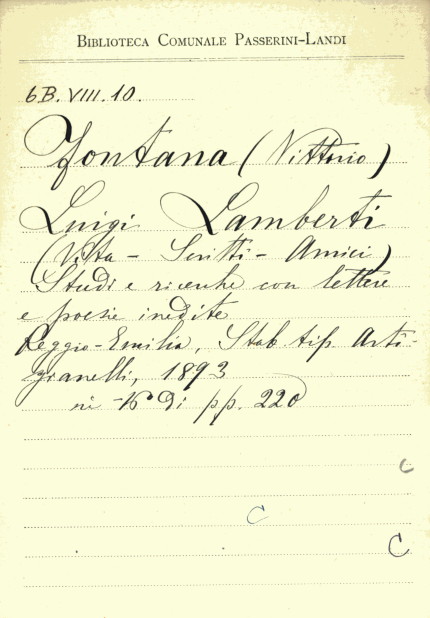 BIBLIOTECA COMUNALE PASSERINI-LANDI
6B.VIII.10.
Fontana (Vittorio)
Luigi Lamberti
(Vita - Scritti - Amici)
Studi e ricerche con lettere
e poesie inedite
Reggio-Emilia, Stab tip. Arti-
gianelli, 1893
in -16° di pp. 220
C
C
C